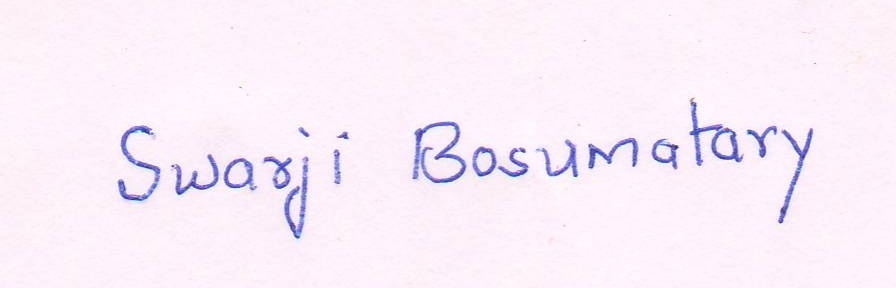 Swarji Bosumatary